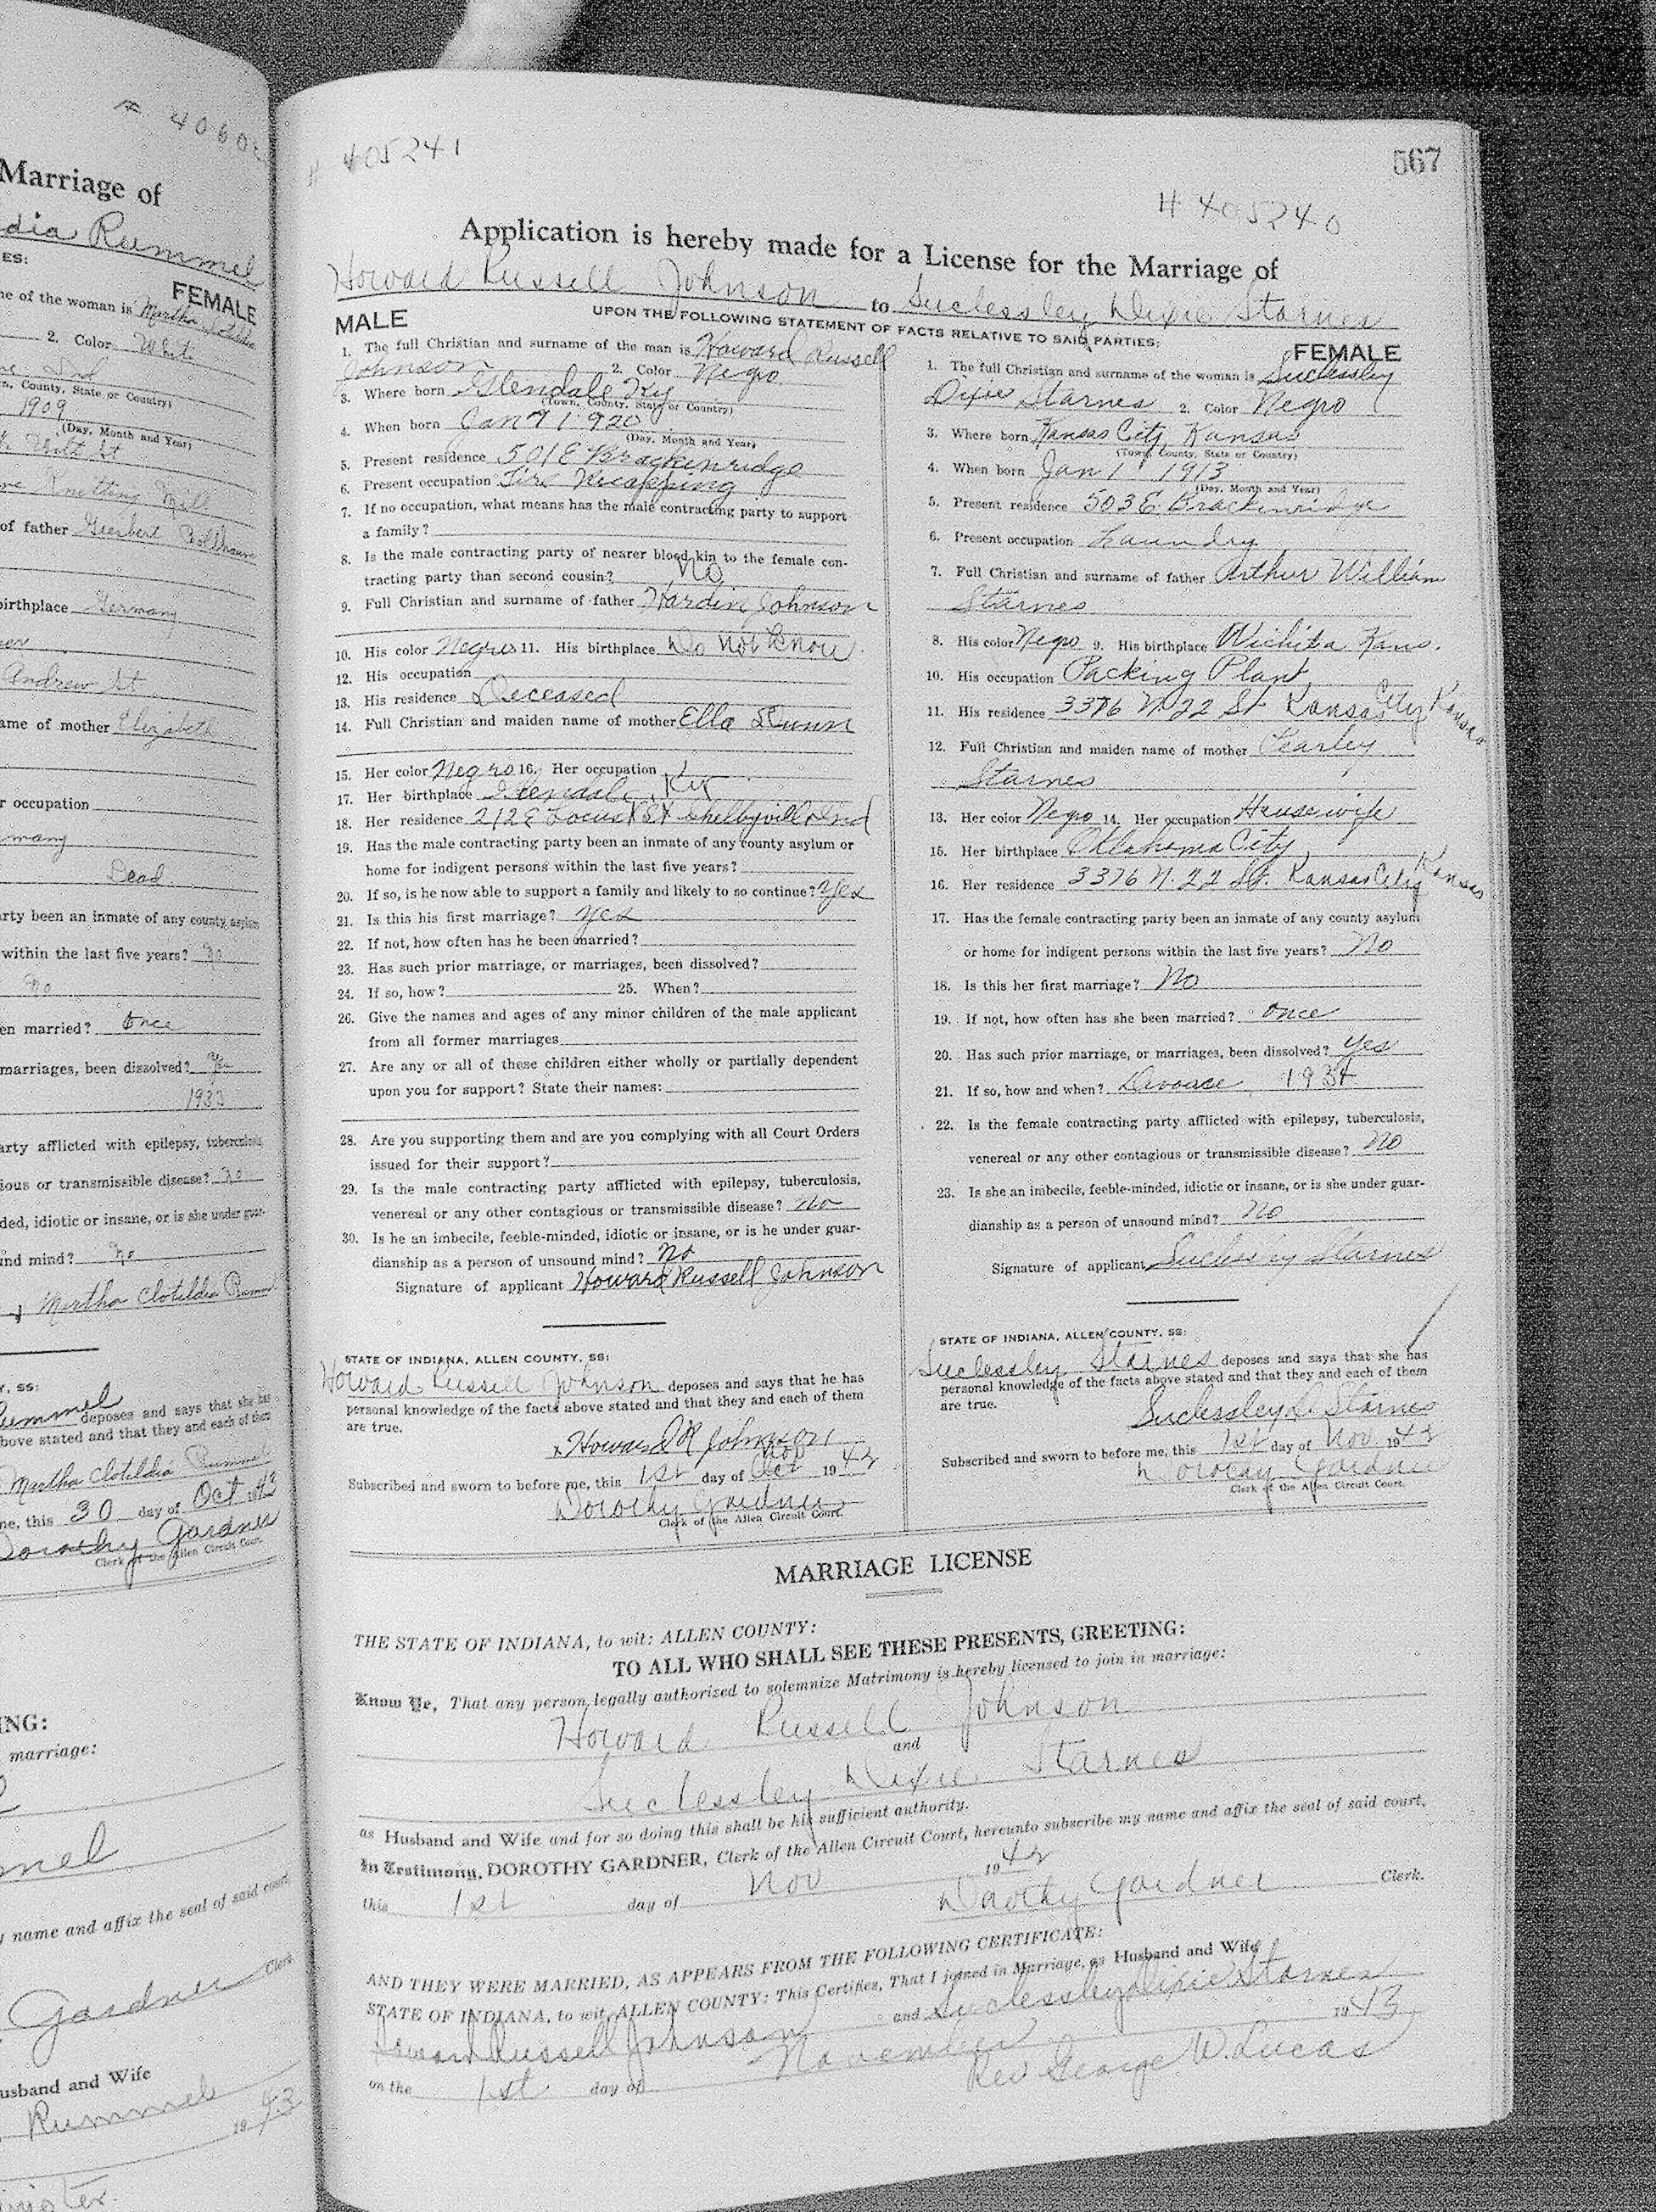 # 4060
Marriage of
dia Rummel
ES:
FEMALE
ne of the woman is Martha
2. Color White
n, County, State or Country)
1909
(Day, Month and Year)
St
Knitting Mill
of father
birthplace Germany
Andrew St
ame of mother Elizabeth
r occupation
many
Dead
rty been an inmate of any county asylum
within the last five years? no
no
en married? Once
marriages, been dissolved?
193
arty afflicted with epilepsy, tuberculosis,
ious or transmissible disease? no
ded, idiotic or insane, or is she under guar-
und mind? no
Martha Clotildia Rummel
Y, SS:
Rummel deposes and says that she has
bove stated and that they and each of them
Martha Clotildia Rummel
me, this 30 day of Oct 1943
Dorothy Gardner
Clerk of the Allen Circuit Court.
NG:
marriage:
mel
y name and affix the seal of said court,
Gardner Clerk.
usband and Wife
Rummel
1943
# 405241
567
# 405240
Application is hereby made for a License for the Marriage of
Howard Russell Johnson to Suclessley Dixie Starnes
UPON THE FOLLOWING STATEMENT OF FACTS RELATIVE TO SAID PARTIES:
MALE
1. The full Christian and surname of the man is Howard Russell
Johnson 2. Color Negro
3. Where born Glendale Ky
(Town, County, State or Country)
4. When born Jan 7 1920
(Day, Month and Year)
5. Present residence 501 E Brackinridge
6. Present occupation Tire Recapping
7. If no occupation, what means has the male contracting party to support
a family?
8. Is the male contracting party of nearer blood kin to the female con-
tracting party than second cousin? No
9. Full Christian and surname of father Hardin Johnson
10. His color Negro 11. His birthplace Do not Know
12. His occupation
13. His residence Deceased
14. Full Christian and maiden name of mother Ella Dunn
15. Her color Negro 16. Her occupation
17. Her birthplace Glendale, Ky
18. Her residence 212 E Locust St Shelbyville Ind
19. Has the male contracting party been an inmate of any county asylum or
home for indigent persons within the last five years?
20. If so, is he now able to support a family and likely to so continue? Yes
21. Is this his first marriage? Yes
22. If not, how often has he been married?
23. Has such prior marriage, or marriages, been dissolved?
24. If so, how? 25. When?
26. Give the names and ages of any minor children of the male applicant
from all former marriages
27. Are any or all of these children either wholly or partially dependent
upon you for support? State their names:
28. Are you supporting them and are you complying with all Court Orders
issued for their support?
29. Is the male contracting party afflicted with epilepsy, tuberculosis,
venereal or any other contagious or transmissible disease? No
30. Is he an imbecile, feeble-minded, idiotic or insane, or is he under guar-
dianship as a person of unsound mind? No
Signature of applicant Howard Russell Johnson
STATE OF INDIANA, ALLEN COUNTY, SS:
Howard Russell Johnson deposes and says that he has
personal knowledge of the facts above stated and that they and each of them
are true.
x Howard R Johnson
Nov
Subscribed and sworn to before me, this 1st day of Oct 1943
Dorothy Gardner
Clerk of the Allen Circuit Court.
FEMALE
1. The full Christian and surname of the woman is Suclessley
Dixie Starnes 2. Color Negro
3. Where born Kansas City, Kansas
(Town, County, State or Country)
4. When born Jan 1 1913
(Day, Month and Year)
5. Present residence 503 E. Brackinridge
6. Present occupation Laundry
7. Full Christian and surname of father Arthur William
Starnes
8. His color Negro 9. His birthplace Wichita Kans.
10. His occupation Packing Plant
11. His residence 3376 N. 22 St Kansas City Kansas
12. Full Christian and maiden name of mother Pearley
Starnes
13. Her color Negro 14. Her occupation Housewife
15. Her birthplace Oklahoma City
16. Her residence 3376 N. 22 St. Kansas City Kansas
17. Has the female contracting party been an inmate of any county asylum
or home for indigent persons within the last five years? No
18. Is this her first marriage? No
19. If not, how often has she been married? Once
20. Has such prior marriage, or marriages, been dissolved? Yes
21. If so, how and when? Divorce, 1934
22. Is the female contracting party afflicted with epilepsy, tuberculosis,
venereal or any other contagious or transmissible disease? No
23. Is she an imbecile, feeble-minded, idiotic or insane, or is she under guar-
dianship as a person of unsound mind? No
Signature of applicant Suclessley Starnes
STATE OF INDIANA, ALLEN COUNTY, SS:
Suclessley Starnes deposes and says that she has
personal knowledge of the facts above stated and that they and each of them
are true.
Suclessley D. Starnes
Subscribed and sworn to before me, this 1st day of Nov 1943
Dorothy Gardner
Clerk of the Allen Circuit Court.
MARRIAGE LICENSE
THE STATE OF INDIANA, to wit: ALLEN COUNTY:
TO ALL WHO SHALL SEE THESE PRESENTS, GREETING:
Know Ye, That any person legally authorized to solemnize Matrimony is hereby licensed to join in marriage:
Howard Russell Johnson
and
Suclessley Dixie Starnes
as Husband and Wife and for so doing this shall be his sufficient authority.
In Testimony, DOROTHY GARDNER, Clerk of the Allen Circuit Court, hereunto subscribe my name and affix the seal of said court,
this 1st day of Nov 1943
Dorothy Gardner Clerk.
AND THEY WERE MARRIED, AS APPEARS FROM THE FOLLOWING CERTIFICATE:
STATE OF INDIANA, to wit, ALLEN COUNTY: This Certifies, That I joined in Marriage, as Husband and Wife
Howard Russell Johnson and Suclessley Dixie Starnes
on the 1st day of November 1943
Rev George W. Lucas